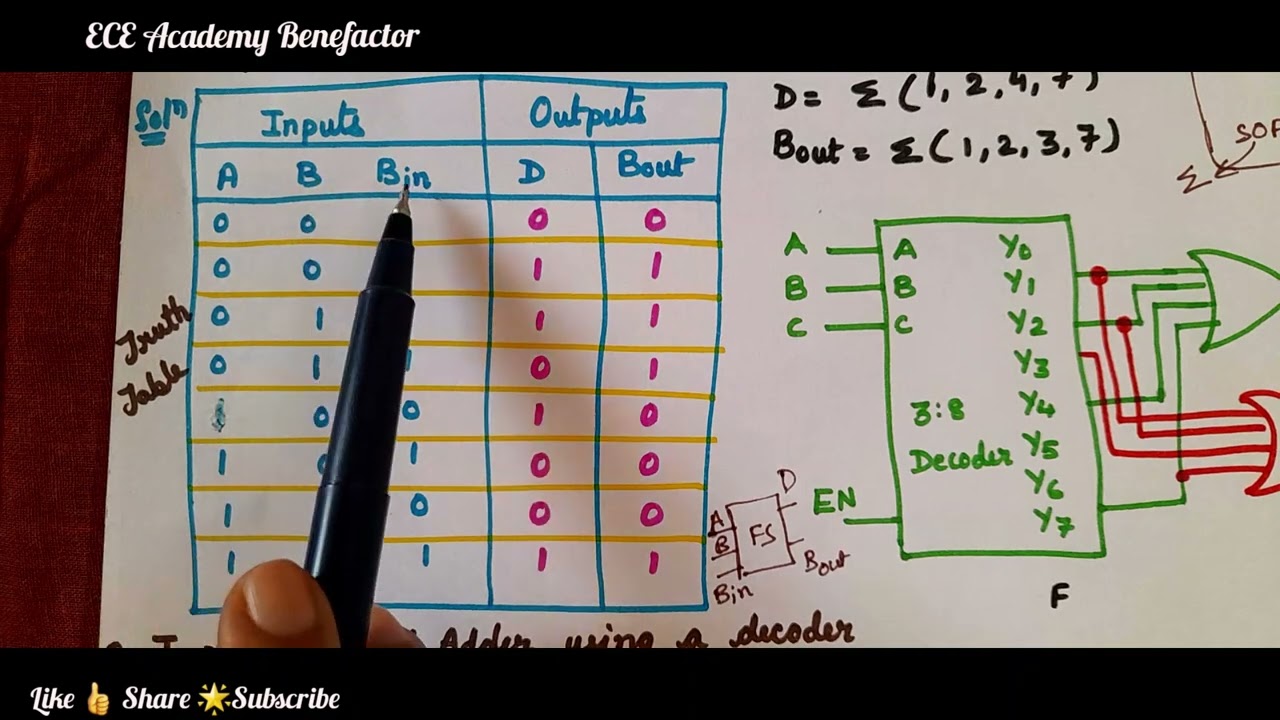 ECE Academy Benefactor
Soln
Inputs Outputs
A B Bin D Bout
0 0 0 0
0 0 1 1
0 1 1 1
0 1 1 0 1
0 0 1 0
1 0 1 0 0
1 0 0 0
1 1 1 1
Truth
Table
D = Σ (1, 2, 4, 7)
Bout = Σ (1, 2, 3, 7)
Σ
A A Y0
B B Y1
C C Y2
Y3
3:8 Y4
Decoder Y5
Y6
EN Y7
F
A D
B FS
Bin Bout
Adder using a decoder
Like 👍 Share 🌟Subscribe